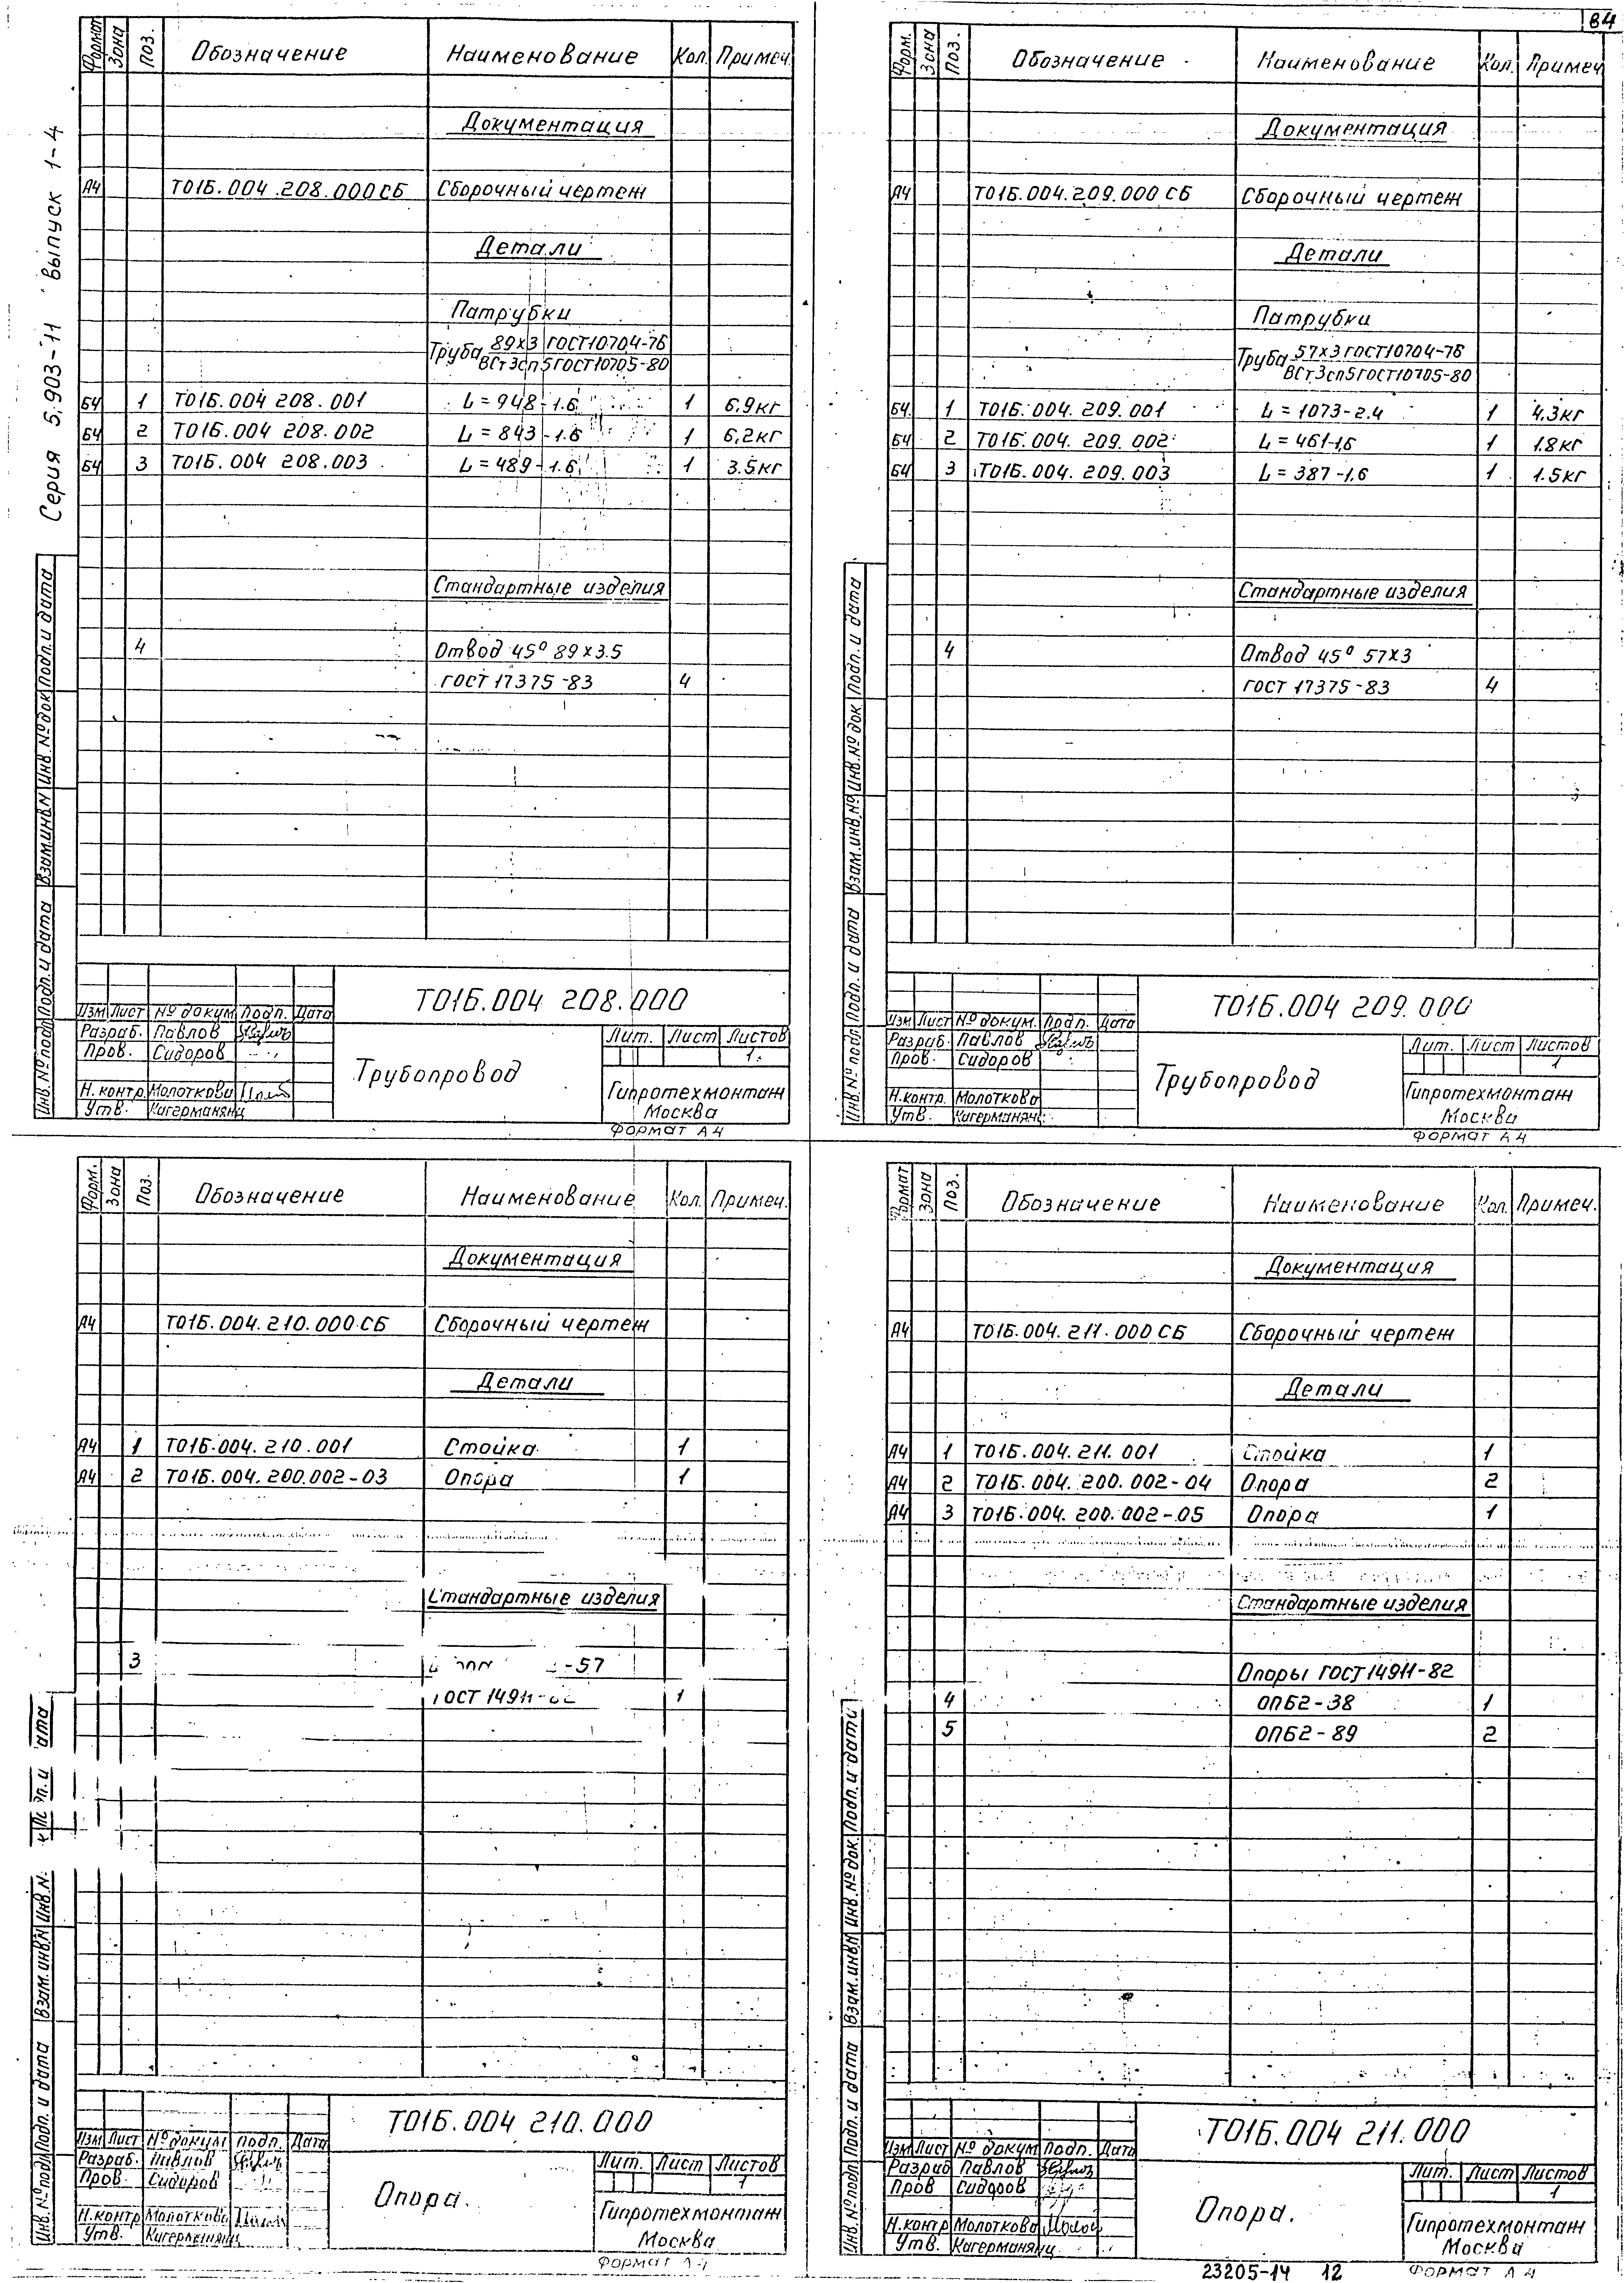 84
Серия 5.903-11 Выпуск 1-4
Формат Зона Поз. Обозначение Наименование Кол. Примеч.
Документация
А4 Т01Б.004.208.000СБ Сборочный чертеж
Детали
Патрубки
Труба 89х3 ГОСТ10704-76
ВСт3сп5ГОСТ10705-80
Б4 1 Т01Б.004 208.001 L=948-1.6 1 6,9кг
Б4 2 Т01Б.004 208.002 L=843-1.6 1 6,2кг
Б4 3 Т01Б.004 208.003 L=489-1.6 1 3.5кг
Стандартные изделия
4 Отвод 45° 89х3.5
ГОСТ 17375-83 4
Инв.№подл Подп. и дата Взам.инв.№ Инв.№док Подп. и дата
Т01Б.004 208.000
Изм Лист № докум Подп. Дата
Разраб. Павлов
Пров. Сидоров
Н.контр. Молоткова
Утв. Кагерманянц
Трубопровод
Лит. Лист Листов
1
Гипротехмонтаж
Москва
Формат А4
Форм. Зона Поз. Обозначение Наименование Кол. Примеч
Документация
А4 Т01Б.004.209.000 СБ Сборочный чертеж
Детали
Патрубки
Труба 57х3 ГОСТ10704-76
ВСт3сп5ГОСТ10705-80
Б4 1 Т01Б.004.209.001 L=1073-2.4 1 4.3кг
Б4 2 Т01Б.004.209.002 L=461-1,6 1 1.8кг
Б4 3 Т01Б.004.209.003 L=387-1,6 1 1.5кг
Стандартные изделия
4 Отвод 45° 57х3
ГОСТ 17375-83 4
Инв.№ подл Подп. и дата Взам.инв.№ Инв.№ док Подп. и дата
Т01Б.004 209.000
Изм Лист № докум. Подп. Дата
Разраб. Павлов
Пров. Сидоров
Н.контр. Молоткова
Утв. Кагерманянц
Трубопровод
Лит. Лист Листов
1
Гипротехмонтаж
Москва
Формат А4
Форм. Зона Поз. Обозначение Наименование Кол. Примеч.
Документация
А4 Т01Б.004.210.000 СБ Сборочный чертеж
Детали
А4 1 Т01Б.004.210.001 Стойка 1
А4 2 Т01Б.004.200.002-03 Опора 1
Стандартные изделия
3 -57
ГОСТ 14911- 1
Инв.№подл Подп. и дата Взам.инв.№ Инв.№
Т01Б.004 210.000
Изм Лист № докум Подп. Дата
Разраб. Павлов
Пров. Сидоров
Н.контр Молоткова
Утв. Кагерманянц
Опора.
Лит. Лист Листов
1
Гипротехмонтаж
Москва
Формат А4
Формат Зона Поз. Обозначение Наименование Кол. Примеч.
Документация
А4 Т01Б.004.211.000 СБ Сборочный чертеж
Детали
А4 1 Т01Б.004.211.001 Стойка 1
А4 2 Т01Б.004.200.002-04 Опора 2
А4 3 Т01Б.004.200.002-05 Опора 1
Стандартные изделия
Опоры ГОСТ 14911-82
4 ОПБ2-38 1
5 ОПБ2-89 2
Инв.№подл Подп. и дата Взам.инв.№ Инв.№док Подп. и дата
Т01Б.004 211.000
Изм Лист № докум Подп. Дата
Разраб Павлов
Пров Сидоров
Н.контр Молоткова
Утв. Кагерманянц
Опора.
Лит. Лист Листов
1
Гипротехмонтаж
Москва
23205-14 12 Формат А4